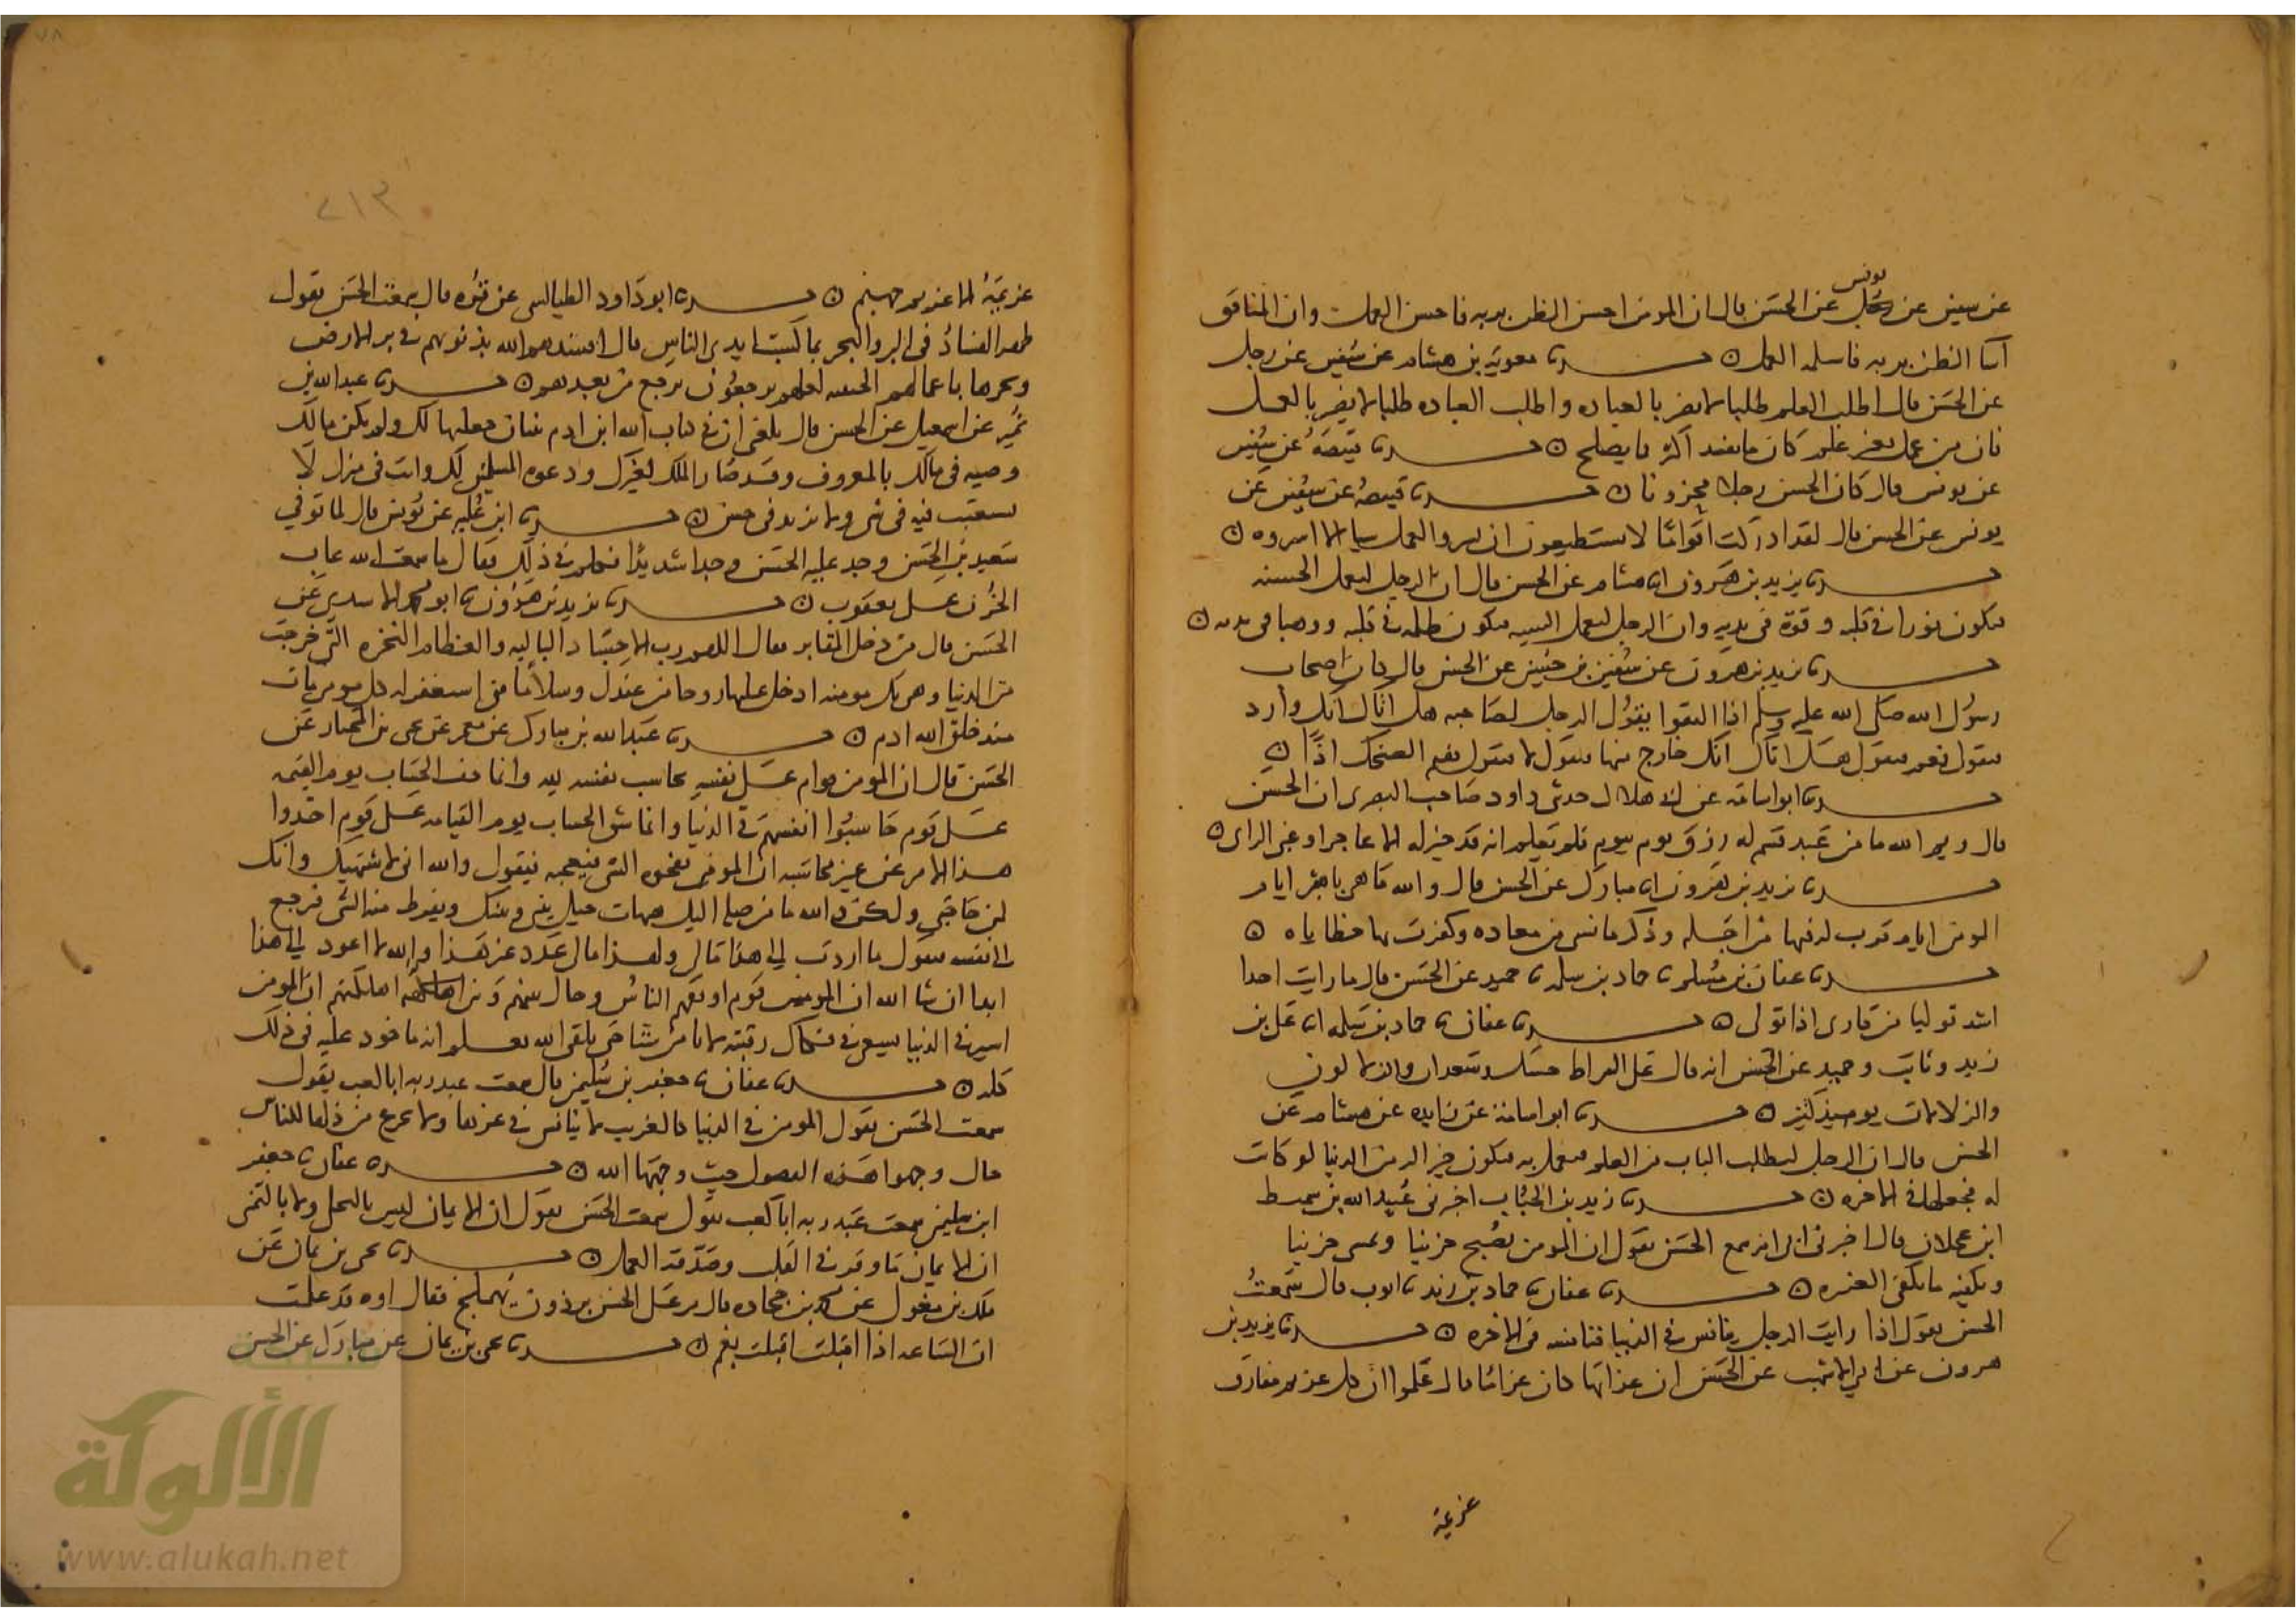 يونس
عن سفين عن رجل عن الحسن قال ان المومن احسن الظن بربه فاحسن العمل وان المنافق
اسا الظن بربه فاسا العمل ۞ حدثنا معوية بن هشام عن سفين عن رجل
عن الحسن قال اطلب العلم طلبا لا يضر بالعباده واطلب العباده طلبا لا يضر بالعلم
فان من عمل بغير علم كان ما يفسد اكثر مما يصلح ۞ حدثنا قبيصة عن سفين
عن يونس قال كان الحسن رجلا محزونا ۞ حدثنا قبيصة عن سفين عن
يونس عن الحسن قال لقد ادركت اقواما لا يستطيعون ان يسروا العمل شيا الا اسروه ۞
حدثنا يزيد بن هرون انا هشام عن الحسن قال ان الرجل ليعمل الحسنه
فتكون نورا في قلبه وقوة في بدنه وان الرجل ليعمل السييه فتكون ظلمه في قلبه ووهنا في بدنه ۞
حدثنا يزيد بن هرون عن سفين بن حسين عن الحسن قال كان اصحاب
رسول الله صلى الله عليه وسلم اذا التقوا يقول الرجل لصاحبه هل اتاك انك وارد
فيقول نعم فيقول هل اتاك انك خارج منها فيقول لا فيقول ففيم الضحك اذا ۞
حدثنا ابو اسامه عن ابي هلال حدثني داود صاحب البصري ان الحسن
قال وايم الله ما من عبد قسم له رزق يوم بيوم فلم يعلم انه قد خير له الا عاجز او غبي الراي ۞
حدثنا يزيد بن هرون انا مبارك عن الحسن قال والله ما هي باشر ايام
المومن ايام قرب له فيها من اجله وذكر ما نسي من معاده وكفرت بها خطاياه ۞
حدثنا عفان بن مسلم نا حماد بن سلمه نا حميد عن الحسن قال ما رايت احدا
اشد توليا من قارى اذا تولى ۞ حدثنا عفان نا حماد بن سلمه انا علي بن
زيد وثابت وحميد عن الحسن انه قال على الصراط حسك وسعدان والزالون
والزلالات يوميذ كثير ۞ حدثنا ابو اسامة عن زايده عن هشام عن
الحسن قال ان الرجل ليطلب الباب من العلم فيعمل به فيكون خيرا له من الدنيا لو كانت
له فجعلها في الاخره ۞ حدثنا زيد بن الحباب اخبرني عبيد الله بن شميط
ابن عجلان قال اخبرني ابي انه سمع الحسن يقول ان المومن يصبح حزينا ويمسي حزينا
ويكفيه ما يكفي العنزه ۞ حدثنا عفان نا حماد بن زيد نا ايوب قال سمعت
الحسن يقول اذا رايت الرجل ينافس في الدنيا فنافسه في الاخره ۞ حدثنا يزيد بن
هرون عن ابي الاشهب عن الحسن ان عذابها كان غراما قال علموا ان كل غريم مفارق
غريمه
٢١٣
٧٨
غريمه الا غريم جهنم ۞ حدثنا ابو داود الطيالسي عن قره قال سمعت الحسن يقول
ظهر الفساد في البر والبحر بما كسبت ايدي الناس قال افسدهم الله بذنوبهم في بر الارض
وبحرها باعمالهم الخبيثه لعلهم يرجعون يرجع من بعدهم ۞ حدثنا عبد الله بن
نمير عن اسمعيل عن الحسن قال بلغني ان في كتاب الله ابن ادم ثنتان جعلتهما لك ولم يكن مالك
وصيه في مالك بالمعروف وقد صار الملك لغيرك ودعوه المسلمين لك وانت في منزل لا
تستعتب فيه من سي ولا تزيد في حسن ۞ حدثنا ابن عليه عن يونس قال لما توفي
سعيد بن الحسن وجد عليه الحسن وجدا شديدا فكلم في ذلك فقال ما سمعت الله عاب
الحزن على يعقوب ۞ حدثنا يزيد بن هرون نا ابو محمد الاسدي عن
الحسن قال من دخل المقابر فقال اللهم رب الاجساد الباليه والعظام النخره التي خرجت
من الدنيا وهي بك مومنه ادخل عليها روحا من عندك وسلاما مني استغفر له كل مومن مات
منذ خلق الله ادم ۞ حدثنا عبد الله بن مبارك عن معمر عن يحيى بن المختار عن
الحسن قال ان المومن قوام على نفسه يحاسب نفسه لله وانما خف الحساب يوم القيمه
على قوم حاسبوا انفسهم في الدنيا وانما شق الحساب يوم القيامه على قوم اخذوا
هذا الامر عن غير محاسبه ان المومن يفجوه الشي يعجبه فيقول والله اني لاشتهيك وانك
لمن حاجتي ولكن والله ما من صله اليك هيهات حيل بيني وبينك ويفرط منه الشي فيرجع
الى نفسه فيقول ما اردت الى هذا مالي ولهذا مالي عذر عن هذا والله لا اعود الى هذا
ابدا ان شا الله ان المومنين قوم اوثقهم القران وحال بينهم وبين هلكتهم ان المومن
اسير في الدنيا يسعى في فكاك رقبته لا يامن شيا حتى يلقى الله يعلم انه ماخوذ عليه في ذلك
كله ۞ حدثنا عفان نا جعفر بن سليمن قال سمعت عبد ربه ابا كعب يقول
سمعت الحسن يقول المومن في الدنيا كالغريب لا ينافس في عزها ولا يجزع من ذلها للناس
حال وجهوا هذه الفضول حيث وجهها الله ۞ حدثنا عفان نا جعفر
ابن سليمن سمعت عبد ربه ابا كعب يقول سمعت الحسن يقول ان الايمان ليس بالتحلي ولا بالتمني
ان الايمان ما وقر في القلب وصدقه العمل ۞ حدثنا يحيى بن يمان عن
ملك بن مغول عن محمد بن جحاده قال مر على الحسن برذون يهملج فقال اوه قد علمت
ان الساعه اذا اقبلت اقبلت بغم ۞ حدثنا يحيى بن يمان عن مبارك عن الحسن
الألوكة
www.alukah.net